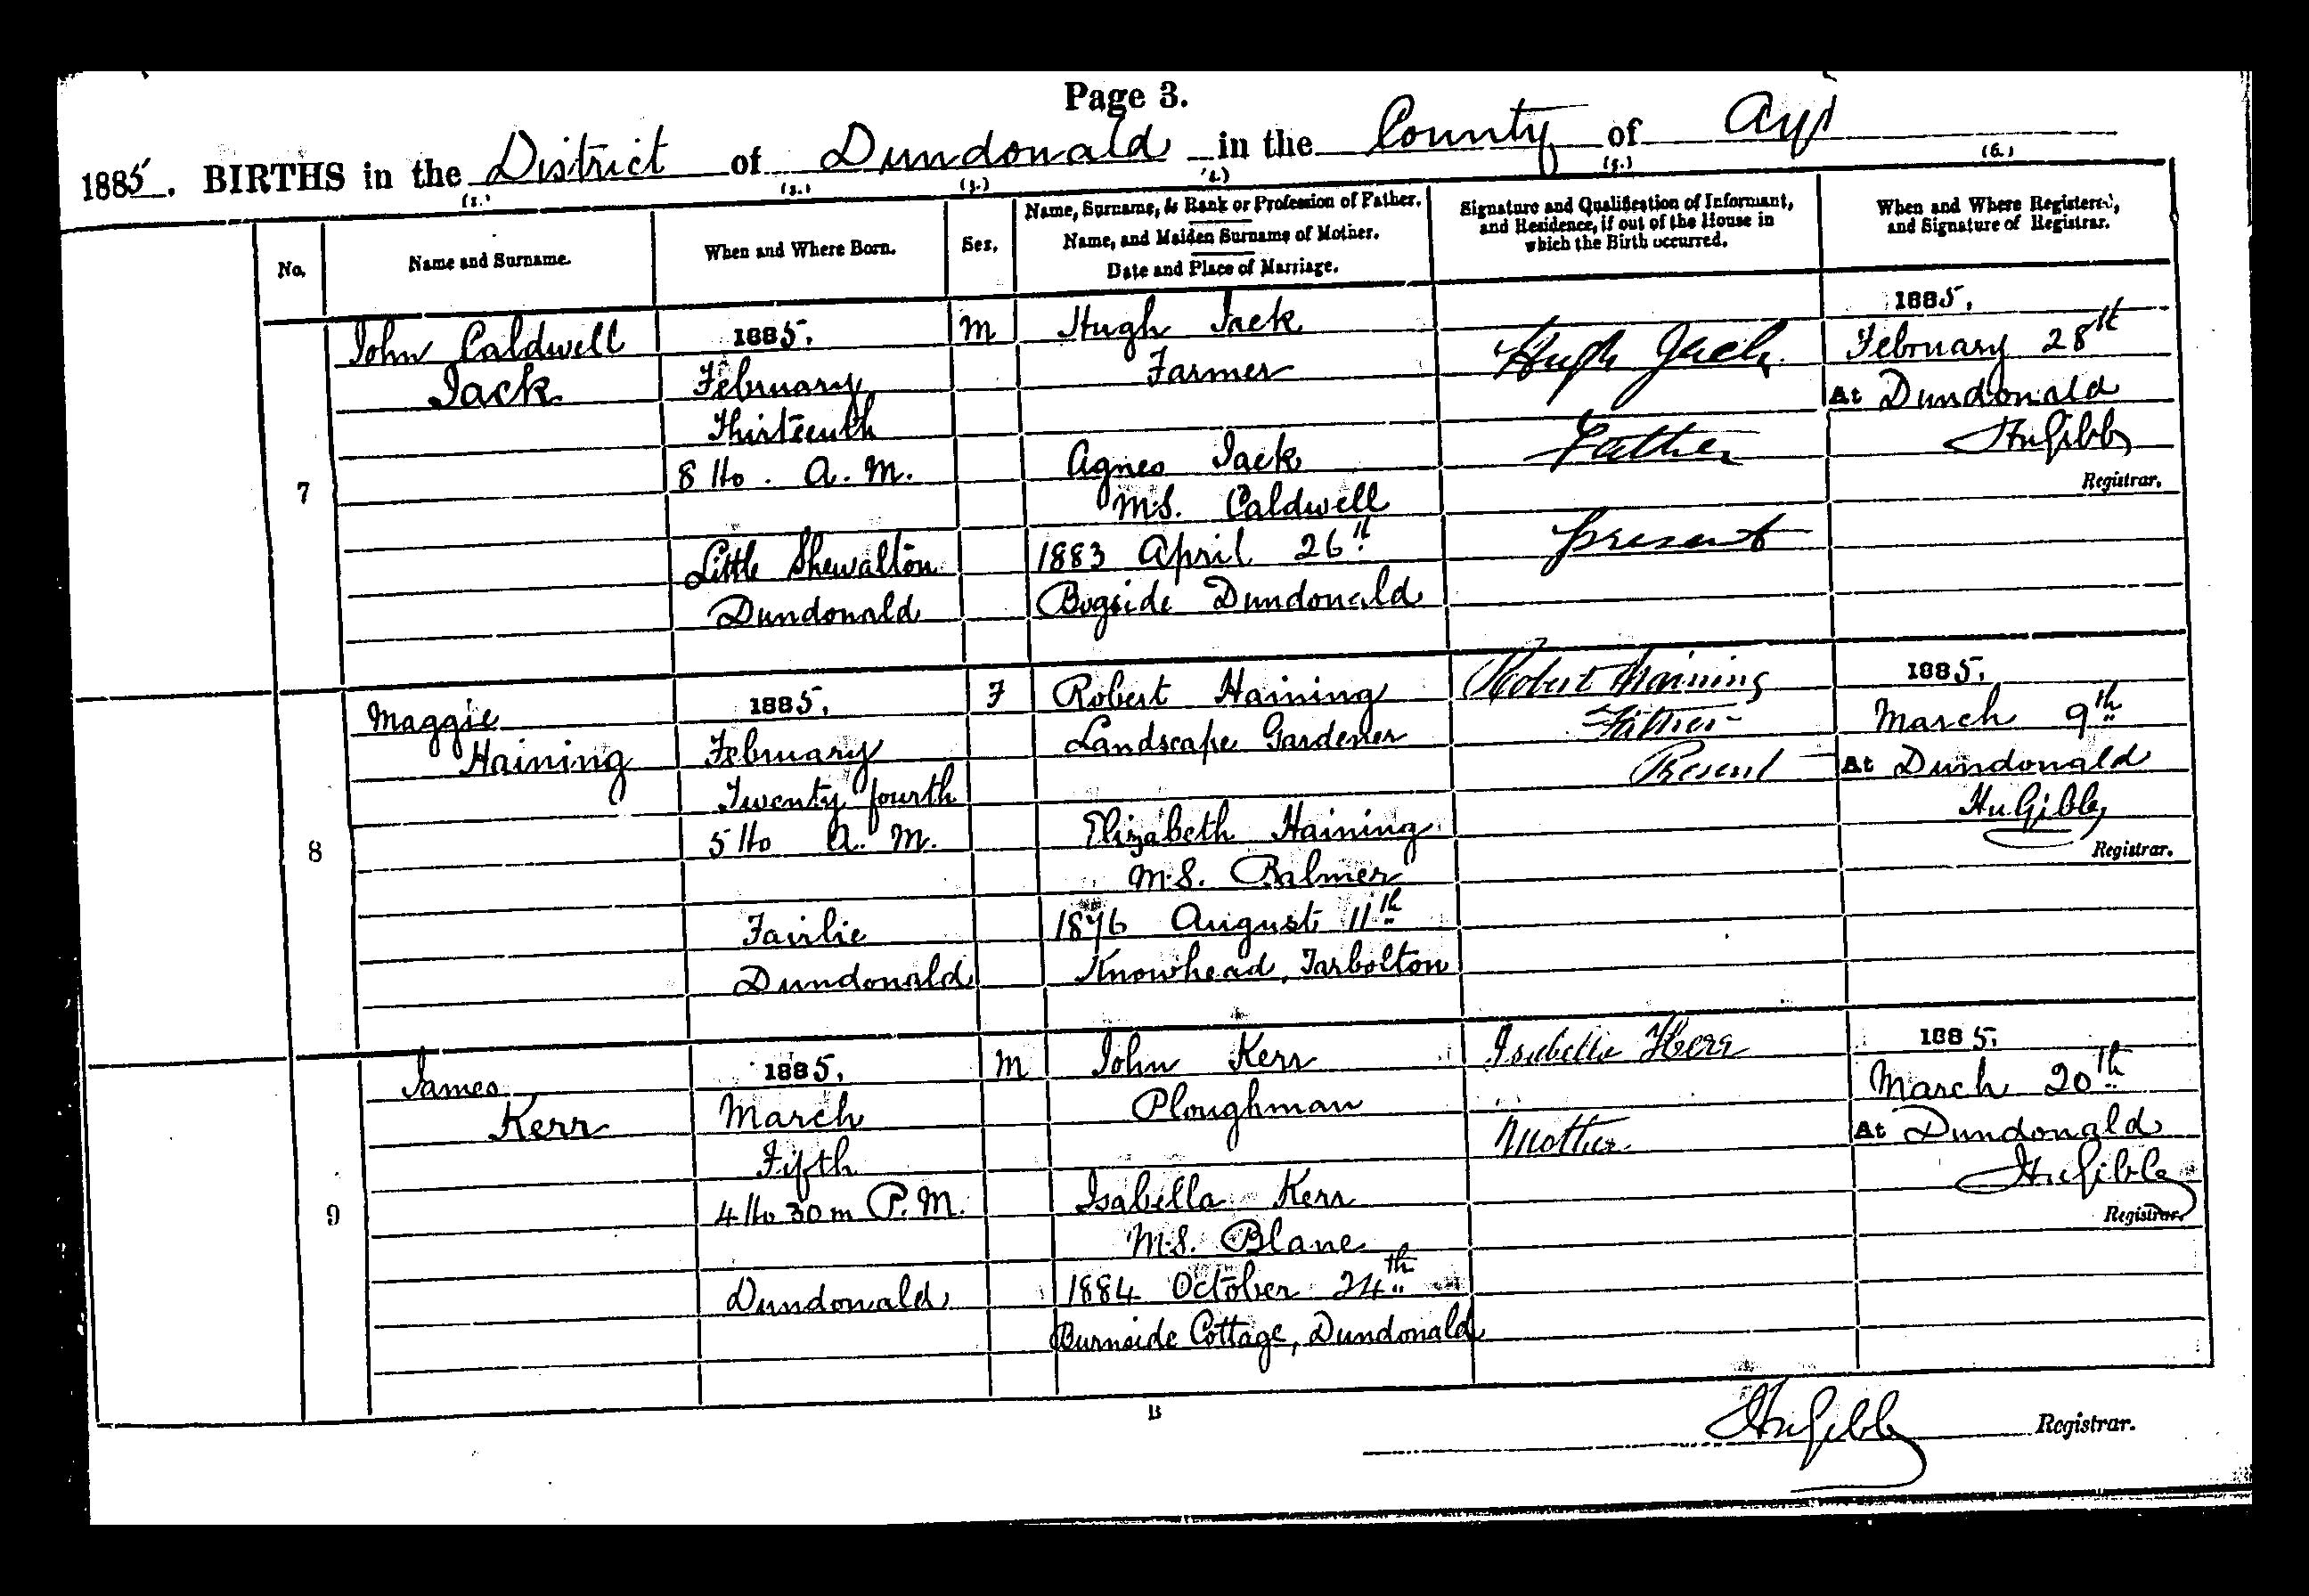 Page 3.
1885. BIRTHS in the District of Dundonald in the County of Ayr
(1.) (2.) (3.) (4.) (5.) (6.)
No.
Name and Surname.
When and Where Born.
Sex.
Name, Surname, & Rank or Profession of Father.
Name, and Maiden Surname of Mother.
Date and Place of Marriage.
Signature and Qualification of Informant,
and Residence, if out of the House in
which the Birth occurred.
When and Where Registered,
and Signature of Registrar.
7
John Caldwell
Jack
1885.
February
Thirteenth
8 Ho. A. M.
Little Shewalton
Dundonald
M
Hugh Jack
Farmer
Agnes Jack
M.S. Caldwell
1883 April 26th
Bogside Dundonald
Hugh Jack
Father
Present
1885.
February 28th
At Dundonald
Hu Gibb
Registrar.
8
Maggie
Haining
1885.
February
Twenty fourth
5 Ho A. M.
Fairlie
Dundonald
F
Robert Haining
Landscape Gardener
Elizabeth Haining
M.S. Balmer
1876 August 11th
Knowhead, Tarbolton
Robert Haining
Father
Present
1885.
March 9th
At Dundonald
Hu Gibb
Registrar.
9
James
Kerr
1885.
March
Fifth
4 Ho 30 m P. M.
Dundonald
M
John Kerr
Ploughman
Isabella Kerr
M.S. Blane
1884 October 24th
Burnside Cottage, Dundonald
Isabella Kerr
Mother
1885.
March 20th
At Dundonald
Hu Gibb
Registrar.
B
Hu Gibb Registrar.